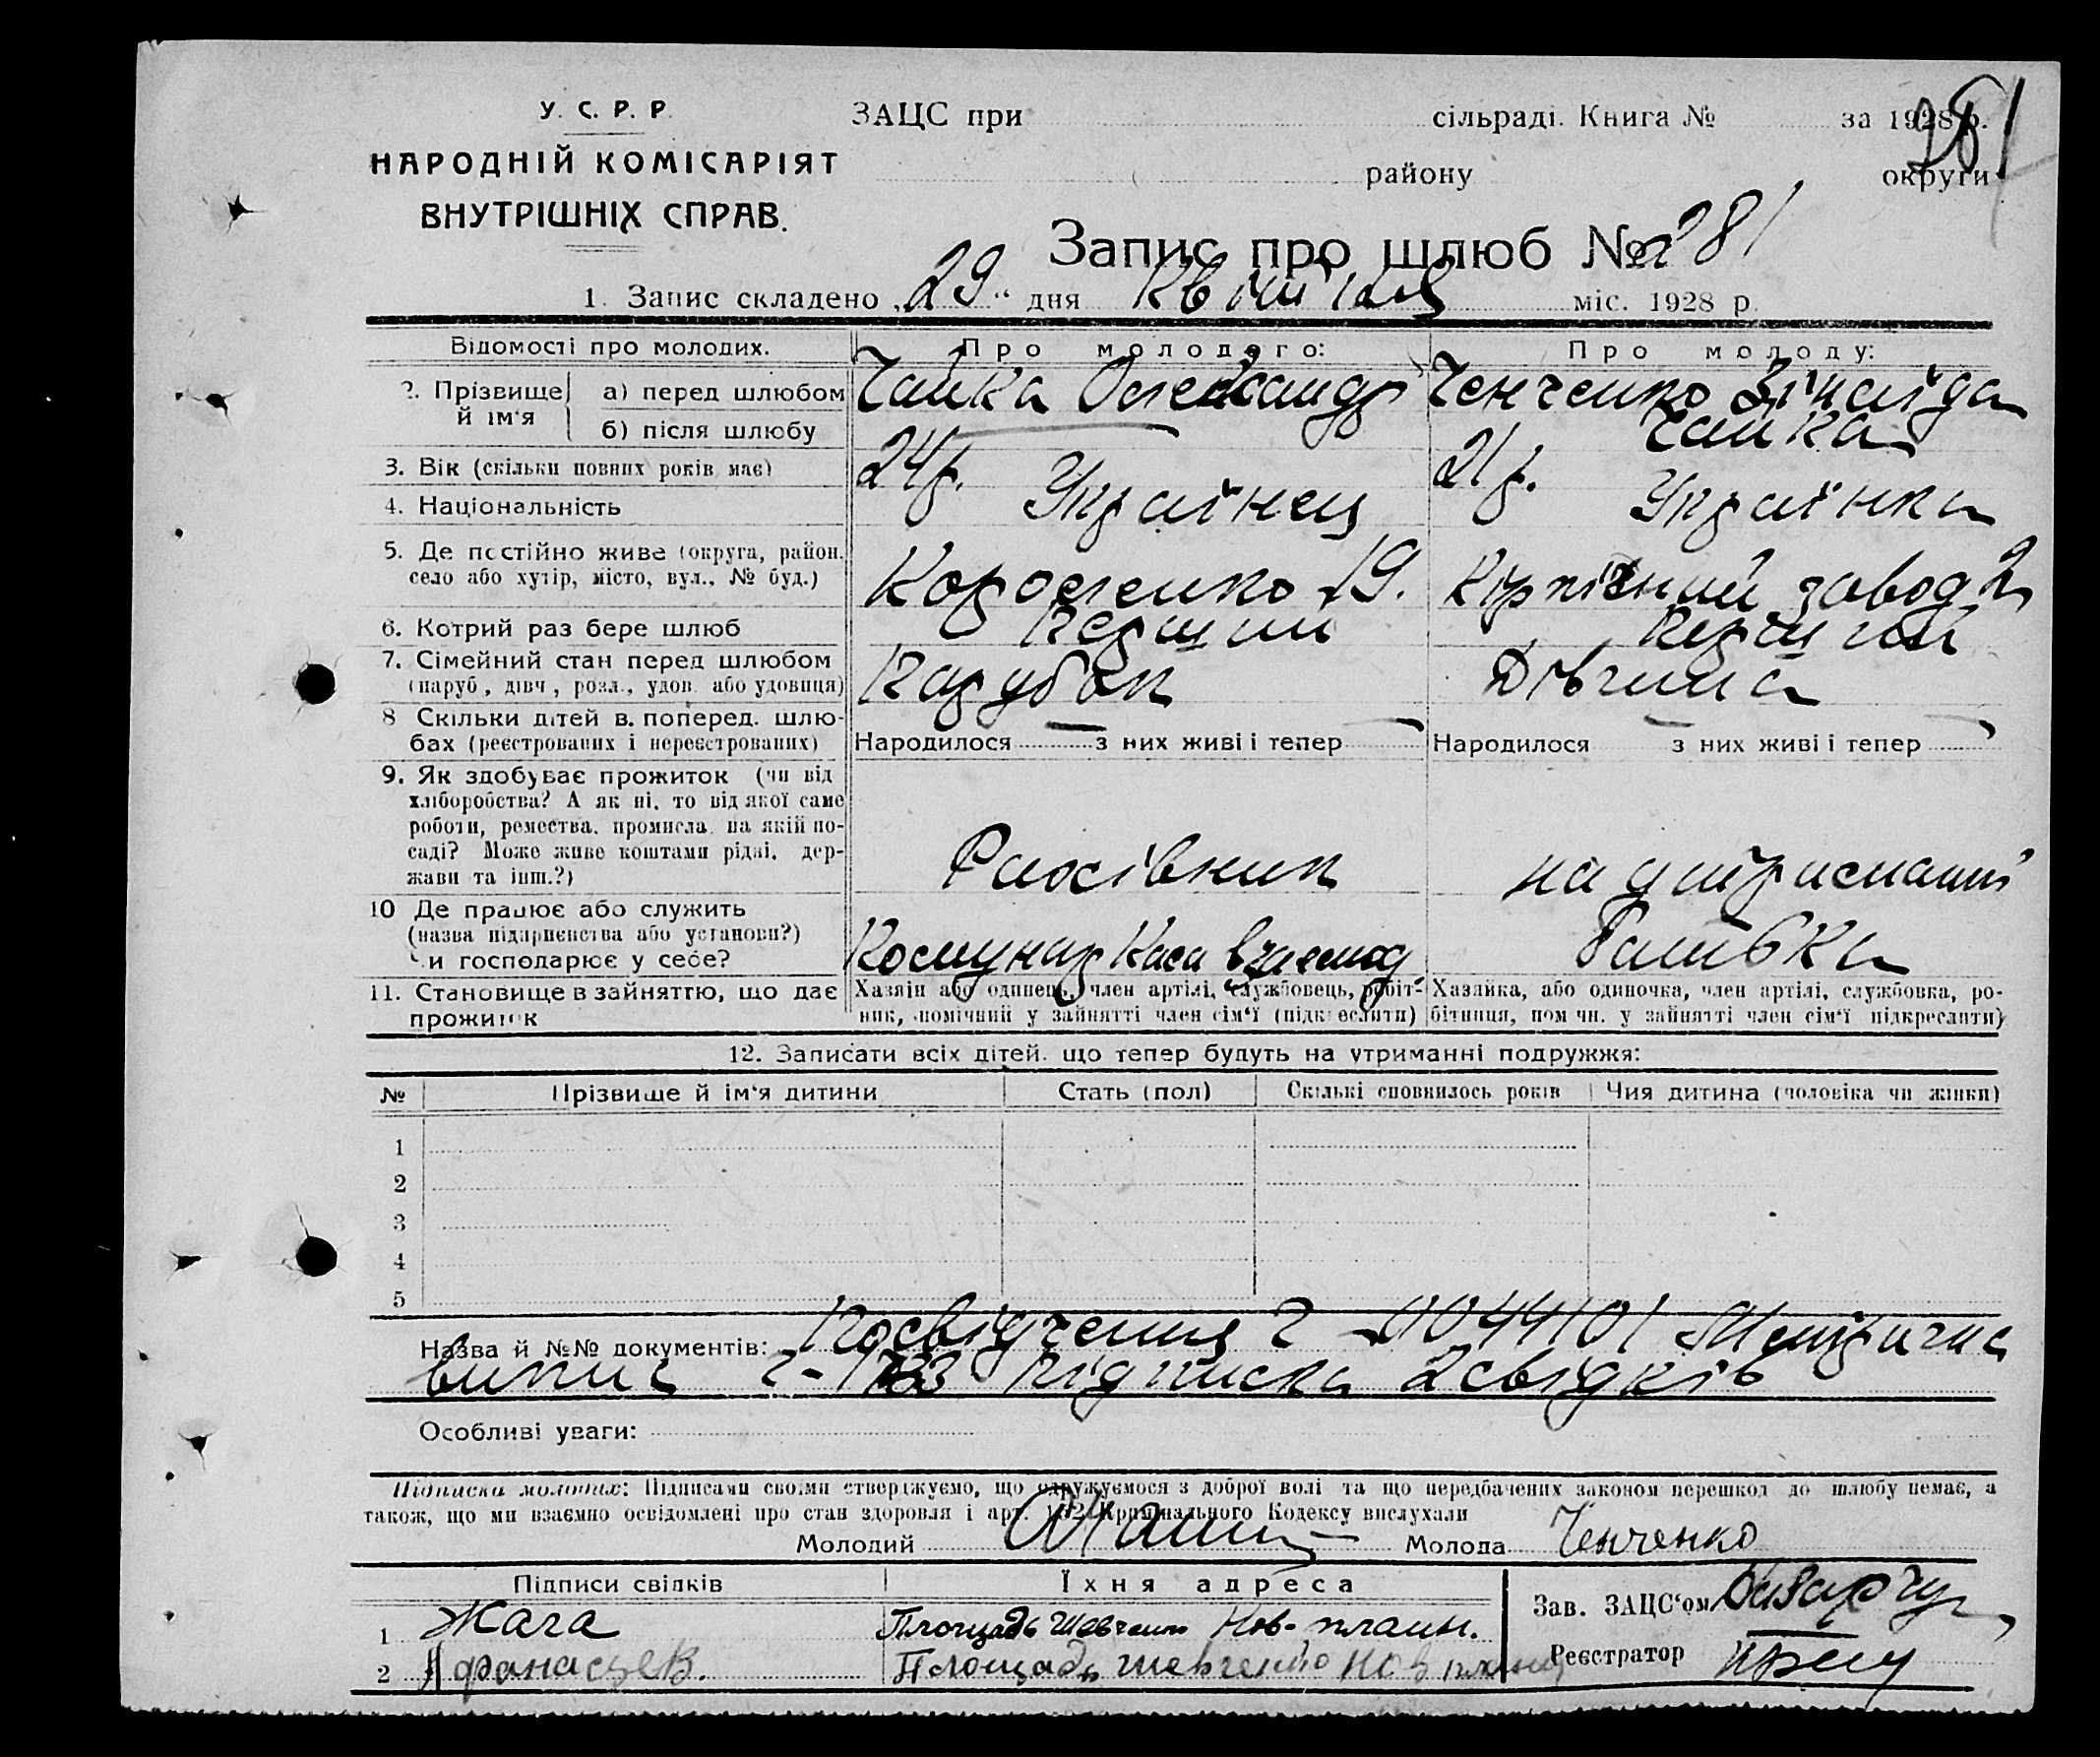 281
У. С. Р. Р.
НАРОДНІЙ КОМІСАРІЯТ
ВНУТРІШНІХ СПРАВ.
ЗАЦС при сільраді. Книга № за 1928 р.
району округи
Запис про шлюб № 281
1. Запис складено „29“ дня Квітня міс. 1928 р.
Відомості про молодих.
Про молодого:
Про молоду:
2. Прізвище й ім'я
а) перед шлюбом
Чайка Олександр
Ченченко Зінаїда
б) після шлюбу
Чайка
3. Вік (скільки повних років має)
24 р.
21 р.
4. Національність
Українец
Українка
5. Де постійно живе (округа, район.
село або хутір, місто, вул., № буд.)
19.
завод 2
6. Котрий раз бере шлюб
Перший
Перший
7. Сімейний стан перед шлюбом
(паруб., дівч., розл., удов. або удовиця)
Парубок
Дівчина
8 Скільки дітей в. поперед. шлю-
бах (реєстрованих і нереєстрованих)
Народилося — з них живі і тепер —
Народилося — з них живі і тепер —
9. Як здобуває прожиток (чи від
хліборобства? А як ні, то від якої саме
роботи, ремества, промисла, на якій по-
саді? Може живе коштами рідні, дер-
жави та інш.?)
Рахівник
на утриманні
10 Де працює або служить
(назва підприємства або установи?)
Чи господарює у себе?
Комунар Каса взаємод.
Батька
11. Становище в зайняттю, що дає
прожиток
Хазяїн або одинець, член артілі, службовець, робіт-
ник, помічний у зайнятті член сім'ї (підкреслити)
Хазяйка, або одиночка, член артілі, службовка, ро-
бітниця, помічн. у зайнятті член сім'ї підкреслити)
12. Записати всіх дітей, що тепер будуть на утриманні подружжя:
№ Прізвище й ім'я дитини Стать (пол) Скількі сповнилось років Чия дитина (чоловіка чи жінки)
1
2
3
4
5
Назва й №№ документів: Посвідчення
підписка 2 свідків
Особливі уваги:
Підписка молодих: Підписами своїми стверджуємо, що одружуємося з доброї волі та що передбачених законом перешкод до шлюбу немає, а
також, що ми взаємно освідомлені про стан здоровля і арт. Крімінального Кодексу вислухали
Молодий Молода Ченченко
Підписи свідків
Їхня адреса
1 Жага Площадь Шевченко Нов- планы.
2 Афанасьев. Площадь Шевченко
Зав. ЗАЦС'ом
Реєстратор